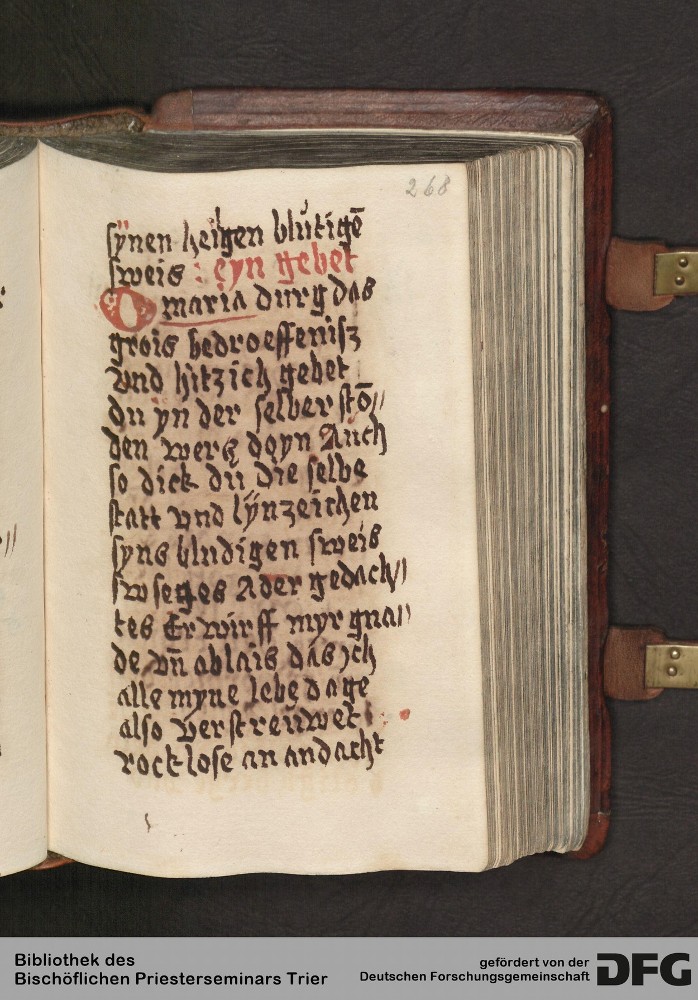 268
synen heilgen blůtigē
sweis : eyn gebet
O maria durg das
grois bedroeffenisz
vnd hitzich gebet
du yn der selber stō//
den wers doyn Auch
so dick dü die selbe
statt vnd lÿnzeichen
syns bludigen sweis
sweseges Ader gedach//
tes Erwirff myr gna//
de vn̄ ablais das ich
alle myne lebedage
also verstreuwet
rocklose an andacht
Bibliothek des
Bischöflichen Priesterseminars Trier
gefördert von der
Deutschen Forschungsgemeinschaft
DFG